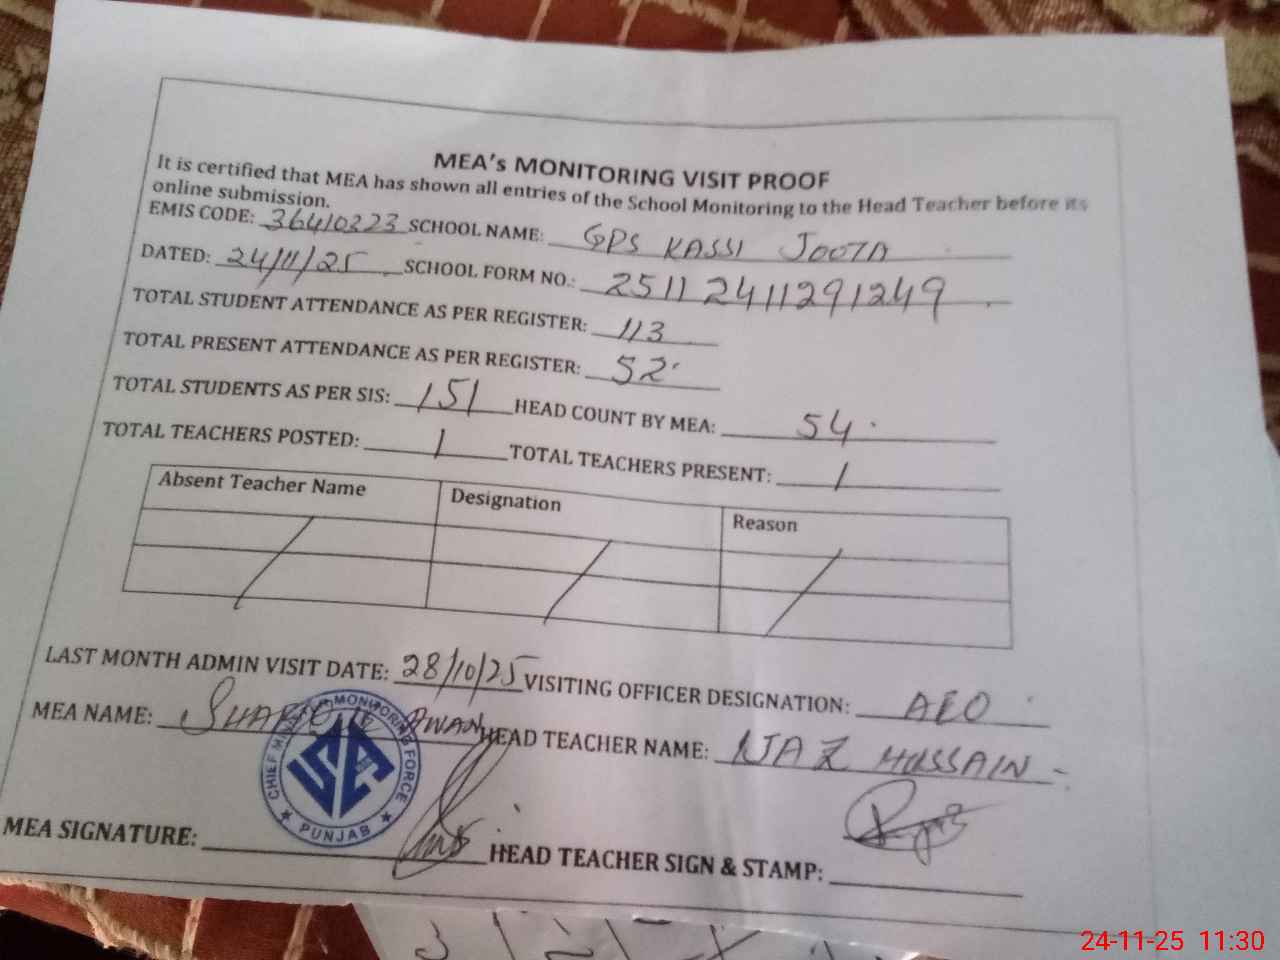 MEA's MONITORING VISIT PROOF
It is certified that MEA has shown all entries of the School Monitoring to the Head Teacher before its
online submission.
EMIS CODE: 36410223 SCHOOL NAME: GPS KASSI JOOTA
DATED: 24/11/25 SCHOOL FORM NO.: 2511 2411291249
TOTAL STUDENT ATTENDANCE AS PER REGISTER: 113
TOTAL PRESENT ATTENDANCE AS PER REGISTER: 52
TOTAL STUDENTS AS PER SIS: 151 HEAD COUNT BY MEA: 54
TOTAL TEACHERS POSTED: 1 TOTAL TEACHERS PRESENT: 1
Absent Teacher Name Designation Reason
LAST MONTH ADMIN VISIT DATE: 28/10/25 VISITING OFFICER DESIGNATION: AEO
MEA NAME: AWAN HEAD TEACHER NAME: NJAZ HUSSAIN
CHIEF MINISTER'S MONITORING FORCE
PUNJAB
MEA SIGNATURE: HEAD TEACHER SIGN & STAMP:
24-11-25 11:30